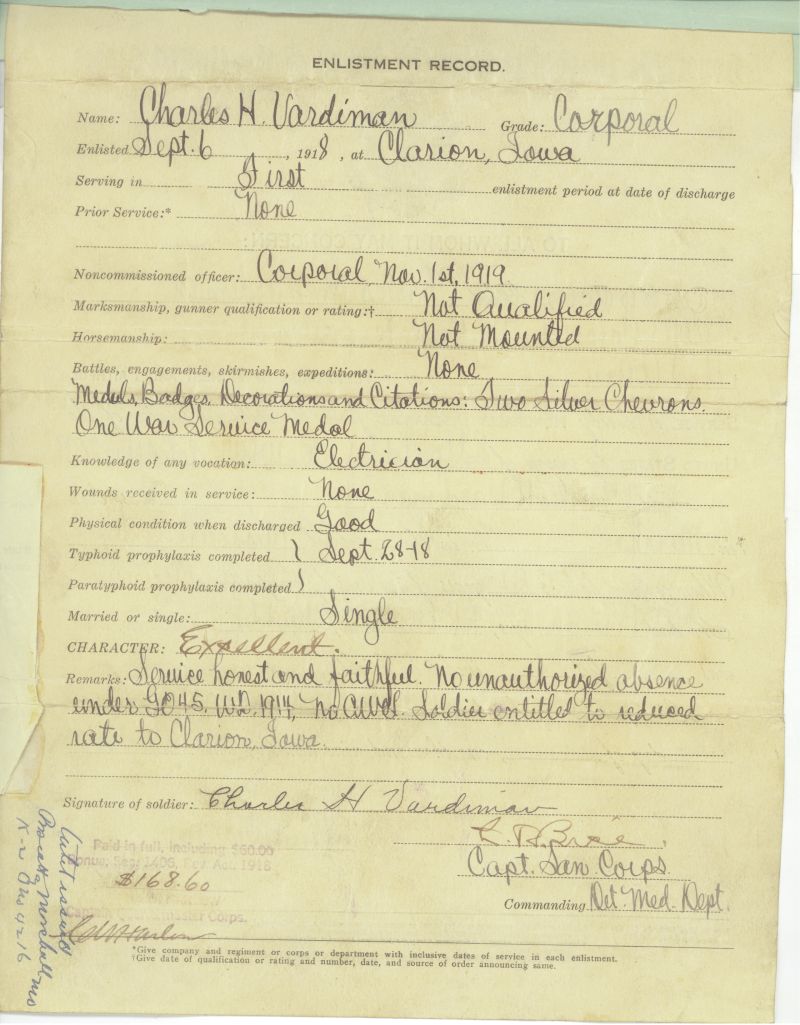 ENLISTMENT RECORD.
Name: Charles H. Vardiman Grade: Corporal
Enlisted Sept. 6, 1918, at Clarion, Iowa
Serving in First enlistment period at date of discharge
Prior Service:* None
Noncommissioned officer: Corporal, Nov. 1st, 1919.
Marksmanship, gunner qualification or rating:† Not Qualified
Horsemanship: Not Mounted
Battles, engagements, skirmishes, expeditions: None
Medals, Badges, Decorations and Citations: Two Silver Chevrons.
One War Service Medal
Knowledge of any vocation: Electrician
Wounds received in service: None
Physical condition when discharged Good
Typhoid prophylaxis completed } Sept. 28-18
Paratyphoid prophylaxis completed
Married or single: Single
CHARACTER: Excellent.
Remarks: Service honest and faithful. No unauthorized absence
under GO 45, WD. 1914, No AWOL. Soldier entitled to reduced
rate to Clarion, Iowa.
Signature of soldier: Charles H Vardiman
Capt. San Corps.
Commanding Det. Med. Dept.
Paid in full, including $60.00
Bonus, Sec. 1406, Rev. Act. 1918
$168.60
Corps.
*Give company and regiment or corps or department with inclusive dates of service in each enlistment.
†Give date of qualification or rating and number, date, and source of order announcing same.
issued
4216